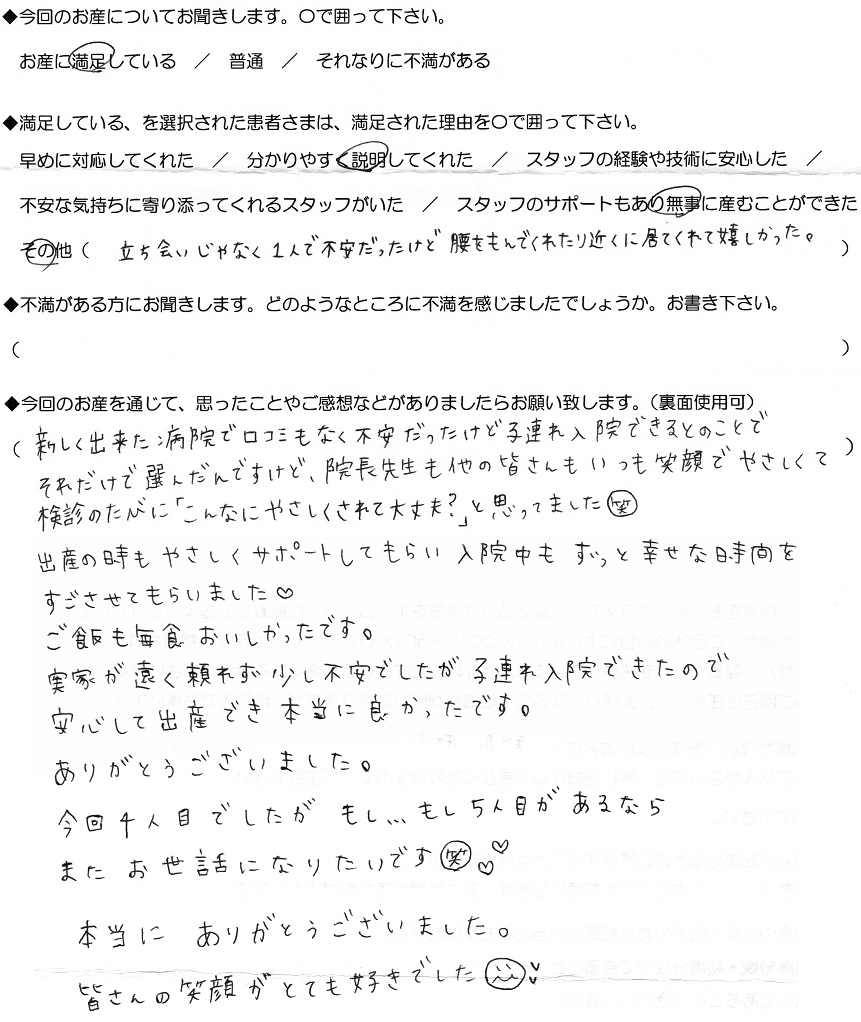 ◆今回のお産についてお聞きします。〇で囲って下さい。
お産に満足している ／ 普通 ／ それなりに不満がある
◆満足している、を選択された患者さまは、満足された理由を〇で囲って下さい。
早めに対応してくれた ／ 分かりやすく説明してくれた ／ スタッフの経験や技術に安心した ／
不安な気持ちに寄り添ってくれるスタッフがいた ／ スタッフのサポートもあり無事に産むことができた
その他（ 立ち会いじゃなく1人で不安だったけど腰をもんでくれたり近くに居てくれて嬉しかった。 ）
◆不満がある方にお聞きします。どのようなところに不満を感じましたでしょうか。お書き下さい。
（ ）
◆今回のお産を通じて、思ったことやご感想などがありましたらお願い致します。（裏面使用可）
（ 新しく出来た病院で口コミもなく不安だったけど子連れ入院できるとのことで ）
それだけで選んだんですけど、院長先生も他の皆さんもいつも笑顔でやさしくて
検診のたびに「こんなにやさしくされて大丈夫？」と思ってました㊗笑
出産の時もやさしくサポートしてもらい入院中もずっと幸せな時間を
すごさせてもらいました♡
ご飯も毎食おいしかったです。
実家が遠く頼れず少し不安でしたが子連れ入院できたので
安心して出産でき本当に良かったです。
ありがとうございました。
今回4人目でしたがもし...もし5人目があるなら
またお世話になりたいです笑♡♡
本当にありがとうございました。
皆さんの笑顔がとても好きでした